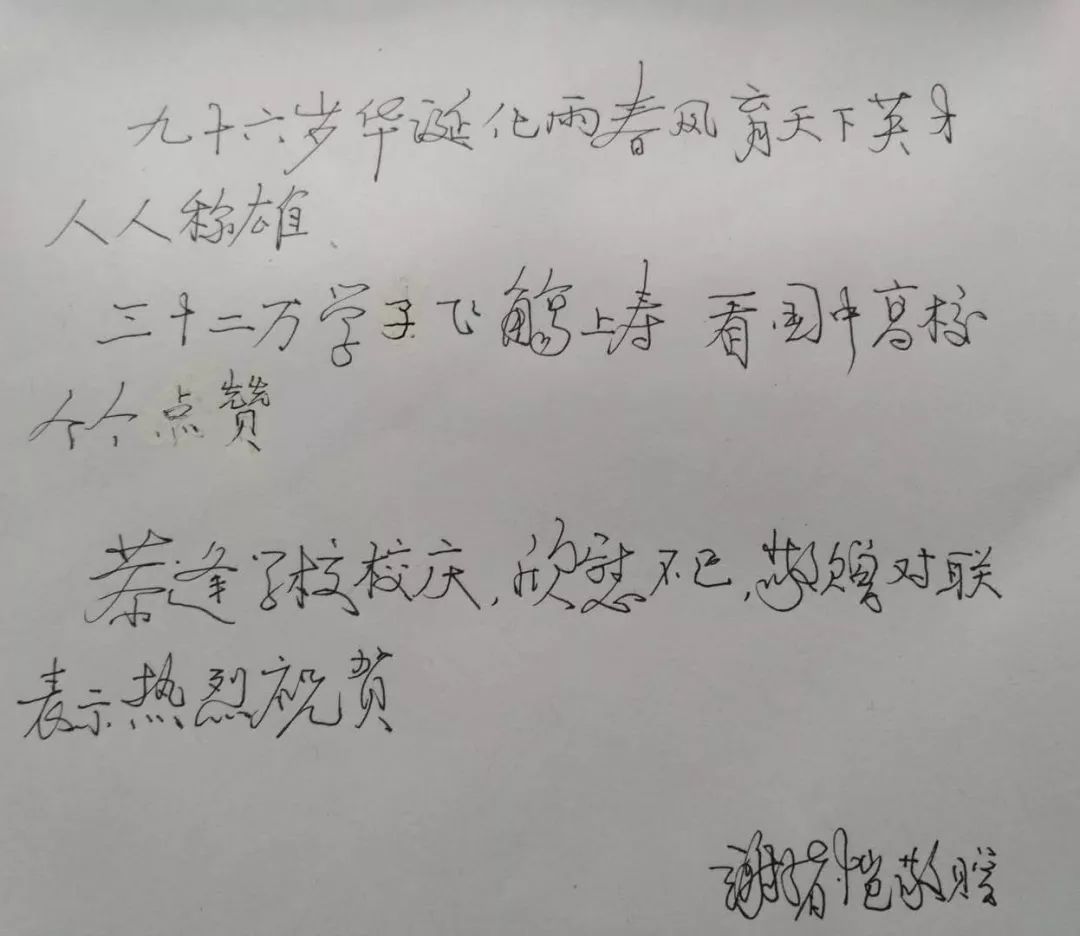 九十六岁华诞化雨春风育天下英才
人人称雄、
三十二万学子飞觴上寿 看国中高校
个个点赞
恭逢学校校庆,欣慰不已,敬赠对联
表示热烈祝贺
谢 敬赠